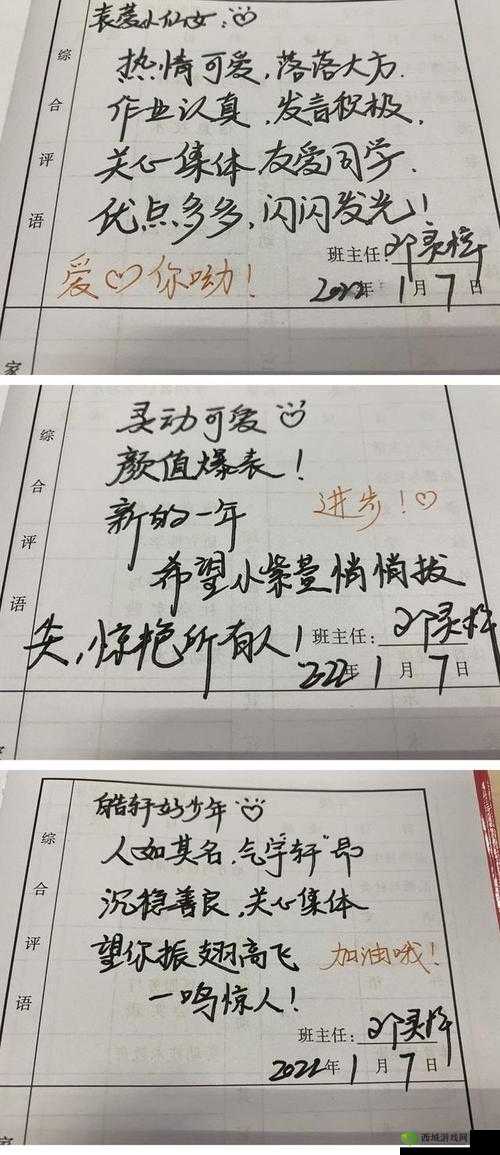 小仙女:
热情可爱,落落大方.
作业认真,发言积极,
关心集体 友爱同学.
优点多多,闪闪发光!
综合评语
班主任:
爱♡你呦!
2022年1月7日
家
灵动可爱
颜值爆表!
新的一年
进步!♡
希望小紫曼悄悄拔
尖,惊艳所有人!
综合评语
班主任:
2022年1月7日
家
皓轩好少年
人如其名,气宇"轩"昂
沉稳善良,关心集体
望你振翅高飞 加油哦!
一鸣惊人!
综合评语
班主任:
2022年1月7日
西城游戏网